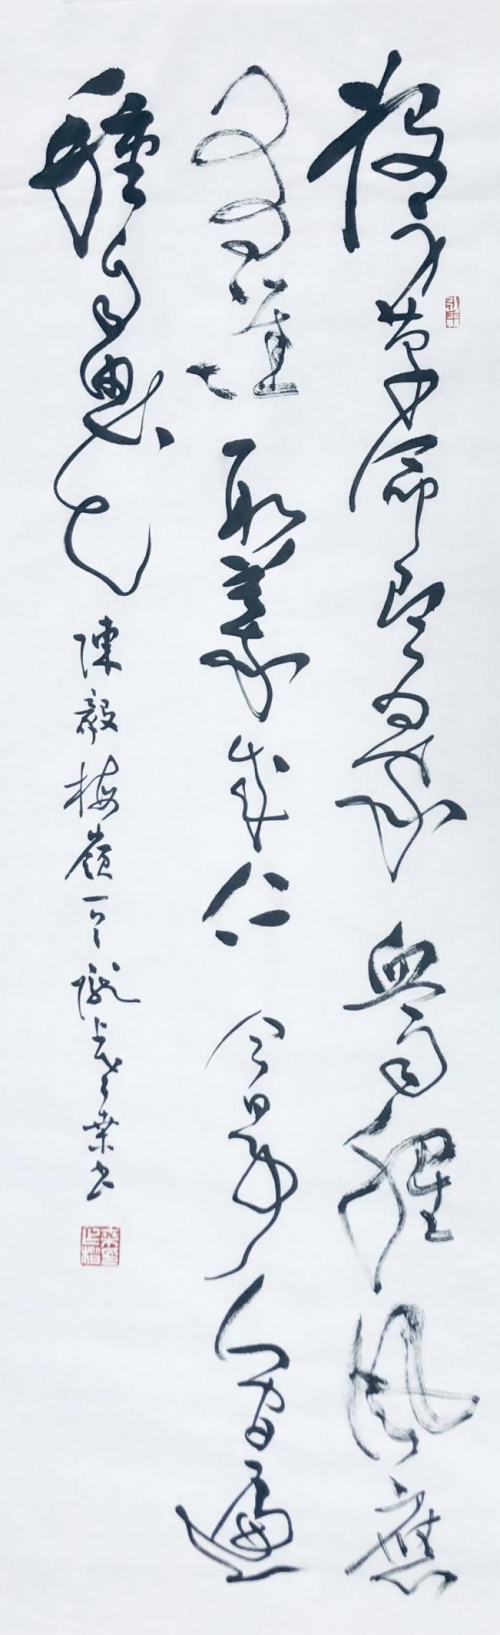 投身革命即為家血雨腥風應
有涯取義成仁今日事人間遍
種自由花陳毅梅嶺隴上書